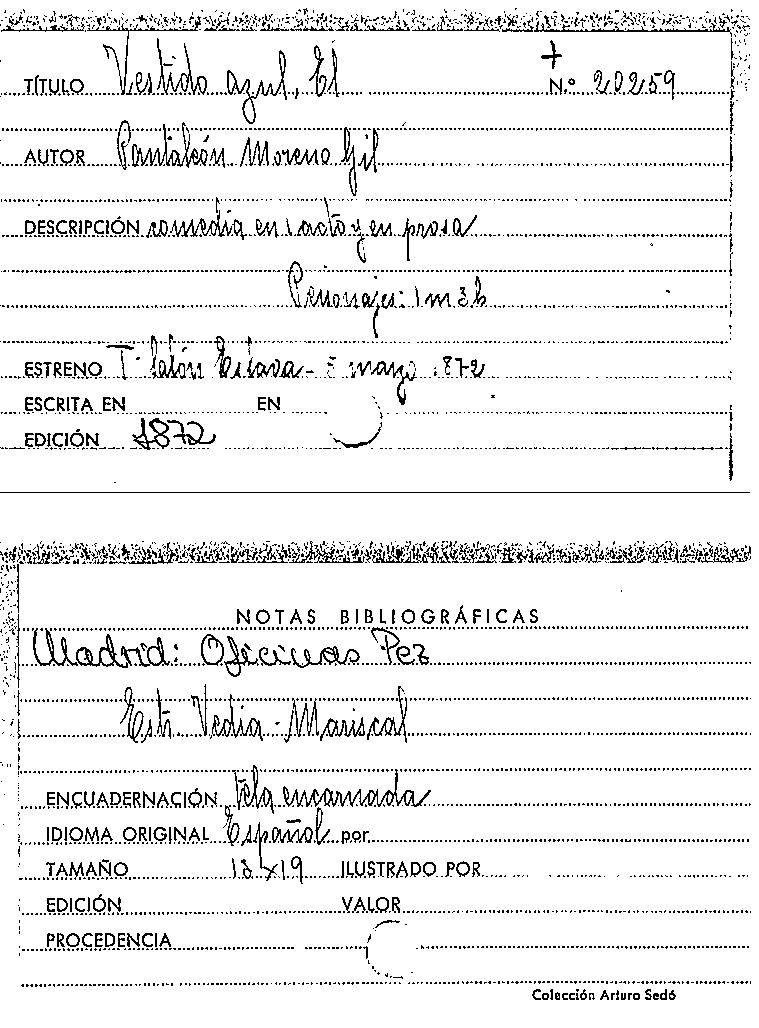 +
TÍTULO Vestido azul, El N.º 20259
AUTOR Pantaleón Moreno Gil
DESCRIPCIÓN comedia en 1 acto y en prosa
Personajes: 1 m 3 h
ESTRENO Tº Salón Eslava - 5 mayo 1872
ESCRITA EN EN
EDICIÓN 1872
NOTAS BIBLIOGRÁFICAS
Madrid: Oficinas Pez
Estr. Vedia - Mariscal
ENCUADERNACIÓN tela encarnada
IDIOMA ORIGINAL Español por
TAMAÑO 13 x 19 ILUSTRADO POR
EDICIÓN VALOR
PROCEDENCIA
Colección Arturo Sedó